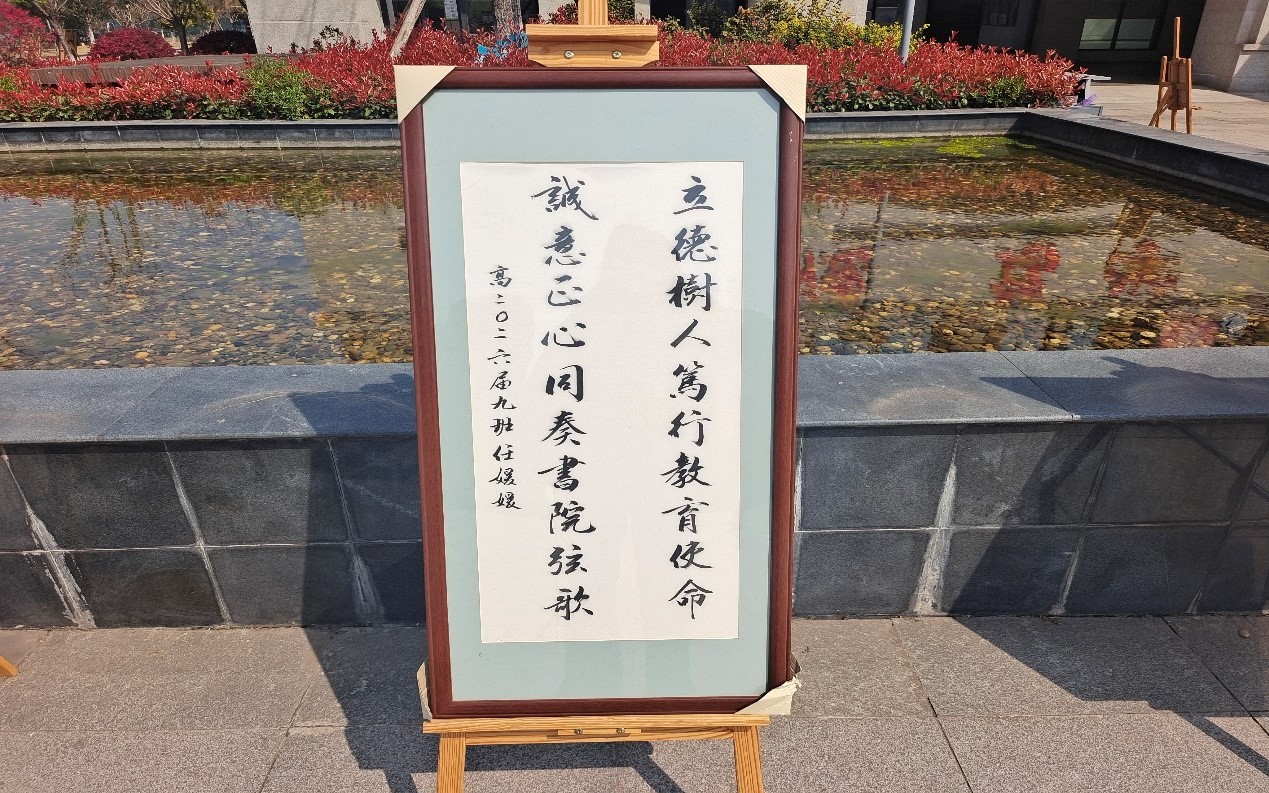 立德樹人篤行教育使命
誠意正心同奏書院弦歌
高二〇二六届九班任媛媛